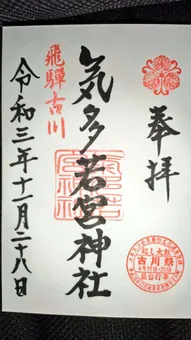 奉拝
飛騨古川
気多若宮神社
令和三年十一月二十八日
起し太鼓
古川祭